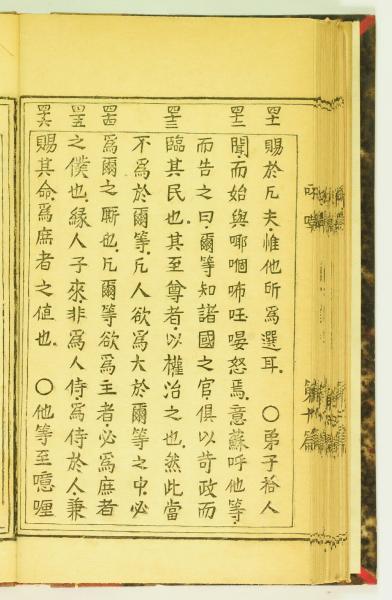 四十一 賜於凡夫.惟他所爲選耳.○弟子拾人
四十二 聞.而始與哪嗰咘晏怒焉.意蘇呼他等.
而告之曰.爾等知諸國之官.俱以苛政而
四十三 臨其民也.其至尊者.以權治之也.然此當
不爲於爾等.凡人欲爲大於爾等之中.必
四十四 爲爾之厮也.凡爾等欲爲主者.必爲庶者
四十五 之僕也.緣人子來.非爲人侍.爲侍於人.兼
四十六 賜其命.爲庶者之值也.○他等至噫哩